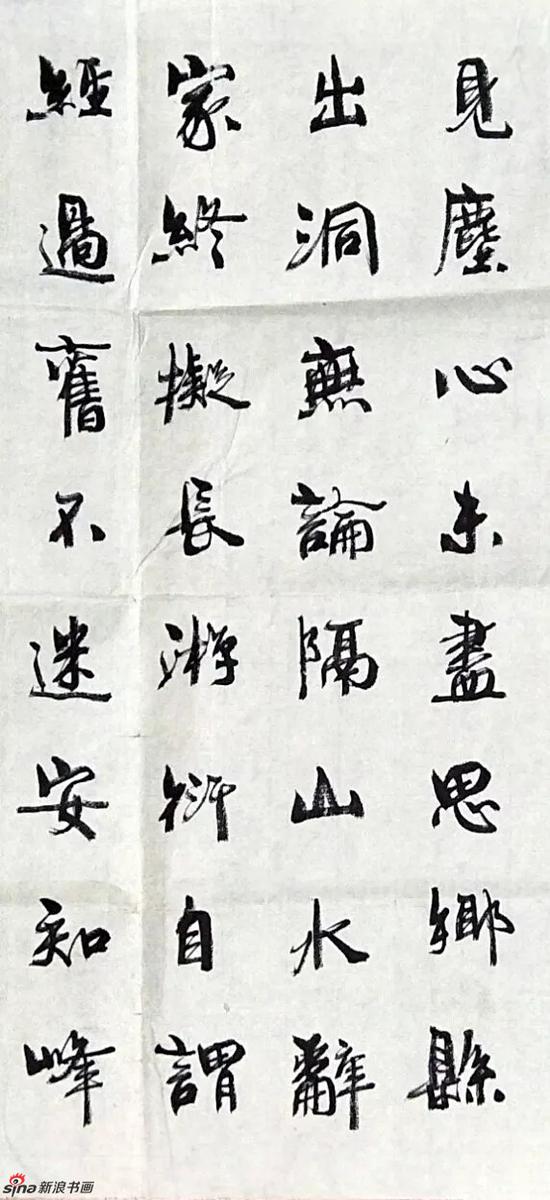 見塵心未盡思鄉縣
出洞無論隔山水辭
家終擬長游衍自謂
經過舊不迷安知峰
sina新浪书画